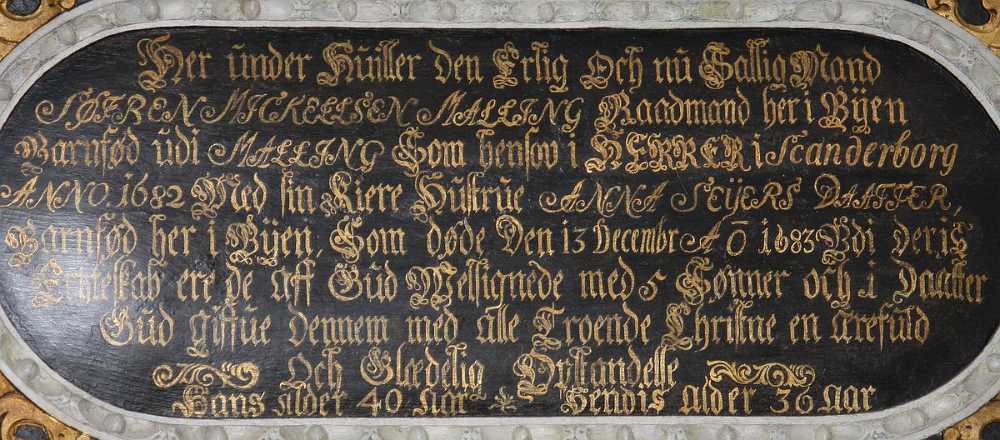 Her under Huiller den Erlig Och nu Sallig Mand
SØFREN MICKELLSEN MALLING Raadmand her i Bÿen
Barnfød udi MALLING Som hensov i HERREN i Scanderborg
ANNO 1682 Med sin Kiere Hustrue ANNA SEIJERS DAATTER,
Barnfød her i Bÿen, Som døde Den 13 Decembr AÕ 1683 Udi deris
Ecteskab ere de Aff Gud Welsignede med 5 Sønner och 1 Daatter
Gud Giffue Dennem med alle Troende Christne en ærefuld
Och Glædelig Opstandelse
Hans Alder 40 Aar * Hendis Alder 36 Aar